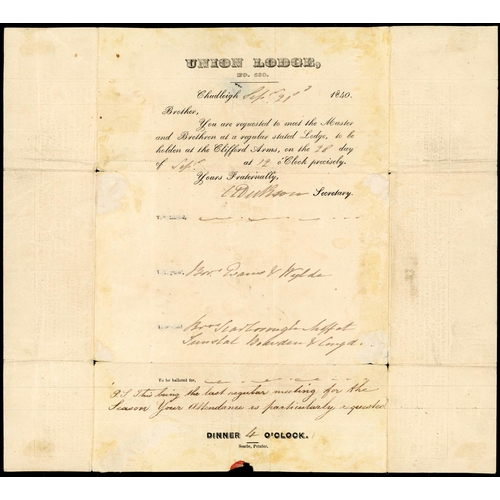 UNION LODGE,
NO. 650.
Chudleigh Sept 21st 1840.
Brother,
You are requested to meet the Master
and Brethren at a regular stated Lodge, to be
holden at the Clifford Arms, on the 28 day
of Sept. at 12 o'Clock precisely.
Yours Fraternally,
Secretary.
Bros Evans & Wylde
Bros Scarborough Moffat
Tunstal Bowden &
To be balloted for,
PS This being the last regular meeting for the
Season Your attendance is particularly requested
DINNER 4 O'CLOCK.
Searle, Printer.